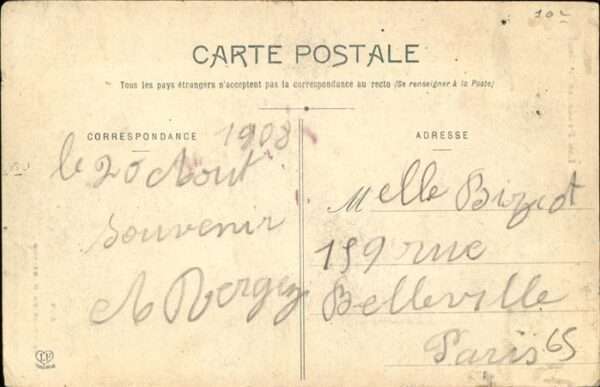 10c
CARTE POSTALE
Tous les pays étrangers n'acceptent pas la correspondance au recto (Se renseigner à la Poste)
CORRESPONDANCE
1908
le 20 Aout
souvenir
A Vergez
ADRESSE
Melle Bizot
159 rue
Belleville
Paris